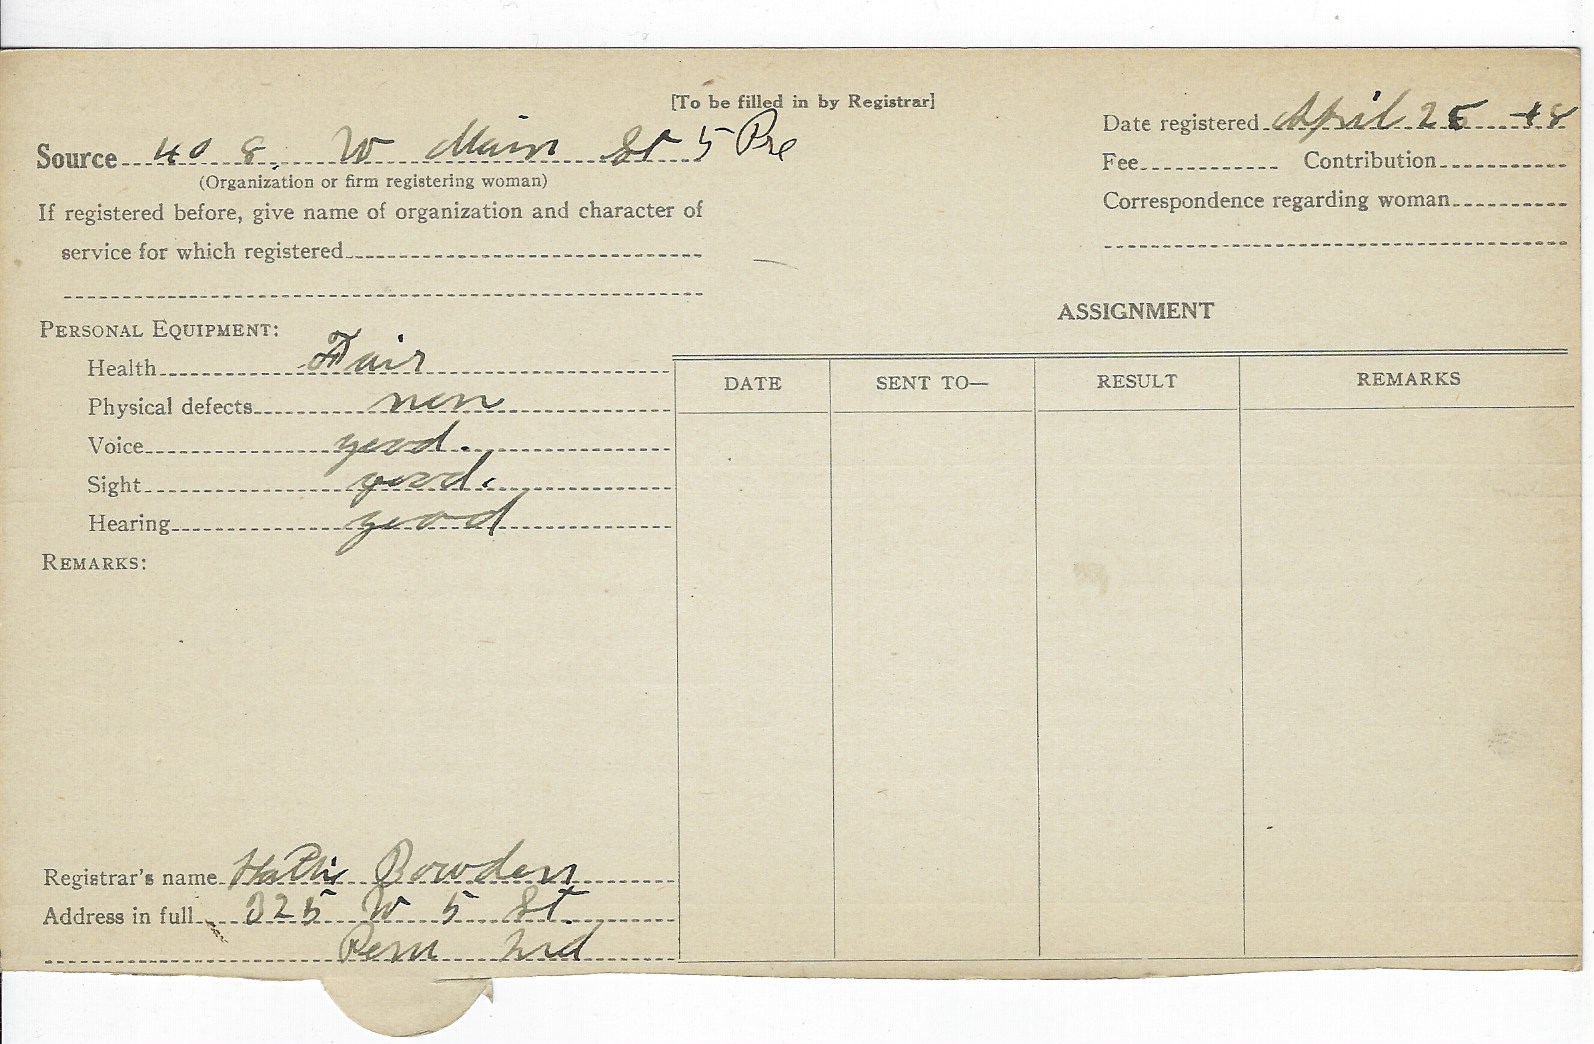 [To be filled in by Registrar]
Date registered April 25 18
Source 408. W Main St 5 Pre
(Organization or firm registering woman)
Fee Contribution
If registered before, give name of organization and character of
service for which registered
Correspondence regarding woman
ASSIGNMENT
PERSONAL EQUIPMENT:
Health Fair
Physical defects non
Voice good.
Sight good.
Hearing good
REMARKS:
DATE SENT TO— RESULT REMARKS
Registrar's name Hattie Bowden
Address in full 325 W 5 St.
Peru Ind